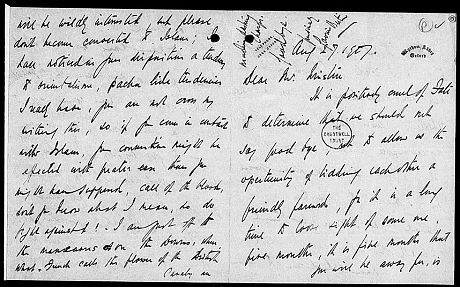 Aug 27, 1907.
Dear Mr. Christin
It is positively cruel of Fate
to determine that we should not
say good bye and to allow us the
opportunity of bidding each other a
friendly farewell, for it is a long
time to lose sight of some one,
five months, it is five months that
you will be away for, is
THE
CHARTWELL
TRUST
will be wildly interested but please
don't become converted to Islam; I
have noticed in your disposition a tendency
to orientalism, pacha like tendencies
I really have, you are not cross my
writing this, so if you come in contact
with Islam, your conversion might be
effected with greater ease than you
might have supposed, call of the blood,
don't you know what I mean, so do
fight against it. I am just off to
the manoeuvres on the Downs, when
what French calls the flower of the British
Cavalry are